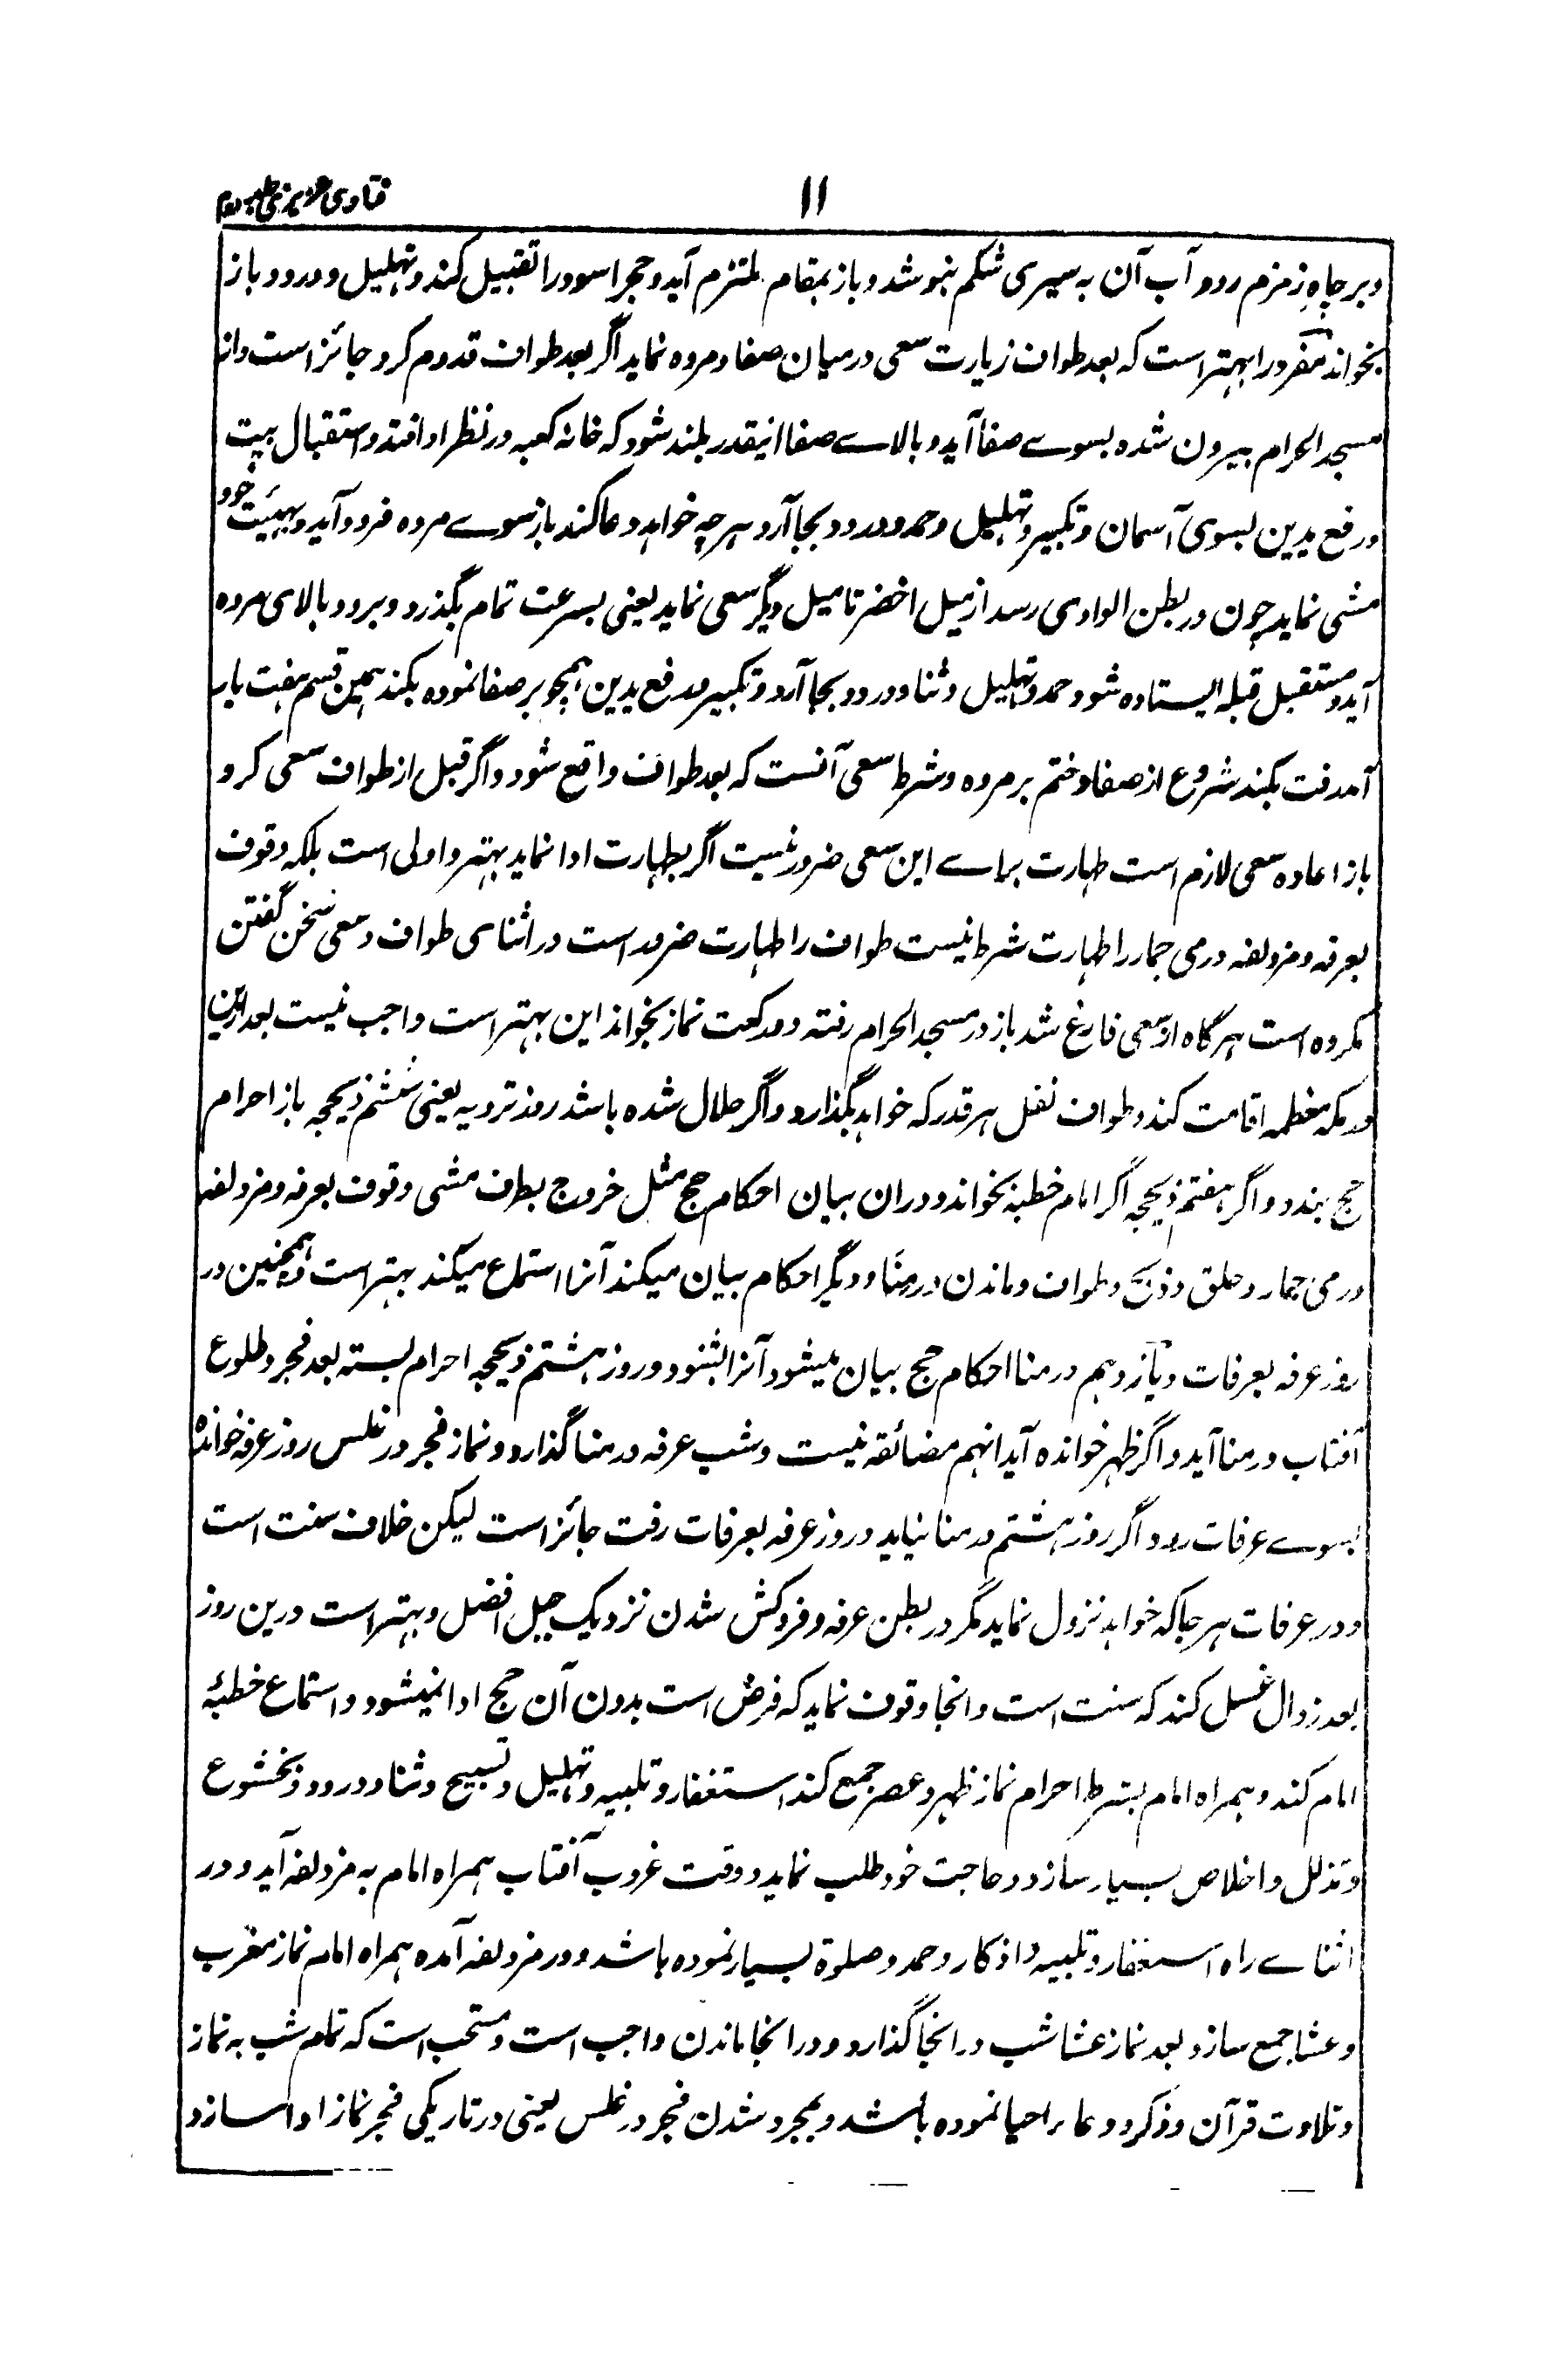 فتاوی عزیزی جلد دوم
۱۱
و بر چاهِ زمزم رود و آب آن به سیری شکم بنوشد و باز بمقام ملتزم آید و حجر اسود را تقبیل کند و تهلیل و درود و باز
بخواند مفرد را بهتر است که بعد طواف زیارت سعی درمیان صفا و مروه نماید اگر بعد طواف قدوم کرد جائز است و از
مسجد الحرام بیرون شده بسوے صفا آید و بالاے صفا اینقدر بلند شود که خانه کعبه در نظر او افتد و استقبال بیت
و رفع یدین بسوی آسمان و تکبیر و تهلیل و حمد و درود بجا آرد هر چه خواهد دعا کند باز سوے مروه فرود آید و بهیئت خود
مشی نماید چون در بطن الوادی رسد از میل اخضر تا میل دیگر سعی نماید یعنی بسرعت تمام بگذرد و برود بالای مروه
آید و مستقبل قبله ایستاده شود حمد و تهلیل و ثنا و درود بجا آرد و تکبیر و رفع یدین همچو بر صفا نموده بکند همین قسم هفت بار
آمدرفت بکند شروع از صفا و ختم بر مروه و شرط سعی آنست که بعد طواف واقع شود و اگر قبل از طواف سعی کرد
باز اعاده سعی لازم است طهارت براے این سعی ضرور نیست اگر بطهارت ادا نماید بهتر و اولی است بلکه وقوف
بعرفه و مزدلفه و رمی جمار را طهارت شرط نیست طواف را طهارت ضرور است در اثنای طواف و سعی سخن گفتن
مکروه است هرگاه از سعی فارغ شد باز در مسجد الحرام رفته دو رکعت نماز بخواند این بهتر است واجب نیست بعد ازین
در مکه معظمه اقامت کند و طواف نفل هر قدر که خواهد بگذارد و اگر حلال شده باشد روز ترویه یعنی ششم ذیحجه باز احرام
حج بندد و اگر هفتم ذیحجه اگر امام خطبه بخواند و دران بیان احکام حج مثل خروج بطرف مشی وقوف بعرفه و مزدلفه
و رمی جمار و حلق و ذبح و طواف و ماندن در منا و دیگر احکام بیان میکند آنرا استماع میکند بهتر است و همچنین در
روز عرفه بعرفات و یازدهم در منا احکام حج بیان میشود آنرا بشنود و روز هشتم ذیحجه احرام بسته بعد فجر و طلوع
آفتاب در منا آید و اگر ظهر خوانده آید انهم مضائقه نیست و شب عرفه در منا گذارد و نماز فجر در غلس روز عرفه خوانده
بسوے عرفات رود و اگر روز هشتم در منا نیاید و روز عرفه بعرفات رفت جائز است لیکن خلاف سنت است
و در عرفات هر جا که خواهد نزول نماید مگر در بطن عرفه و فروکش شدن نزدیک جبل افضل و بهتر است درین روز
بعد زوال غسل کند که سنت است و انجا وقوف نماید که فرض است بدون آن حج ادا نمیشود و استماع خطبهٔ
امام کند و همراه امام بشرط احرام نماز ظهر و عصر جمع کند استغفار و تلبیه و تهلیل و تسبیح و ثنا و درود و بخشوع
و تذلل و اخلاص بسیار سازد و حاجت خود طلب نماید و وقت غروب آفتاب همراه امام به مزدلفه آید و در
اثناے راه استغفار و تلبیه و اذکار و حمد و صلوة بسیار نموده باشد و در مزدلفه آمده همراه امام نماز مغرب
و عشا جمع سازد بعد نماز عشا شب در انجا گذارد و در انجا ماندن واجب است و مستحب است که تمام شب به نماز
و تلاوت قرآن و ذکر و دعا را احیا نموده باشد و بمجرد شدن فجر در غلس یعنی در تاریکی فجر نماز ادا سازد